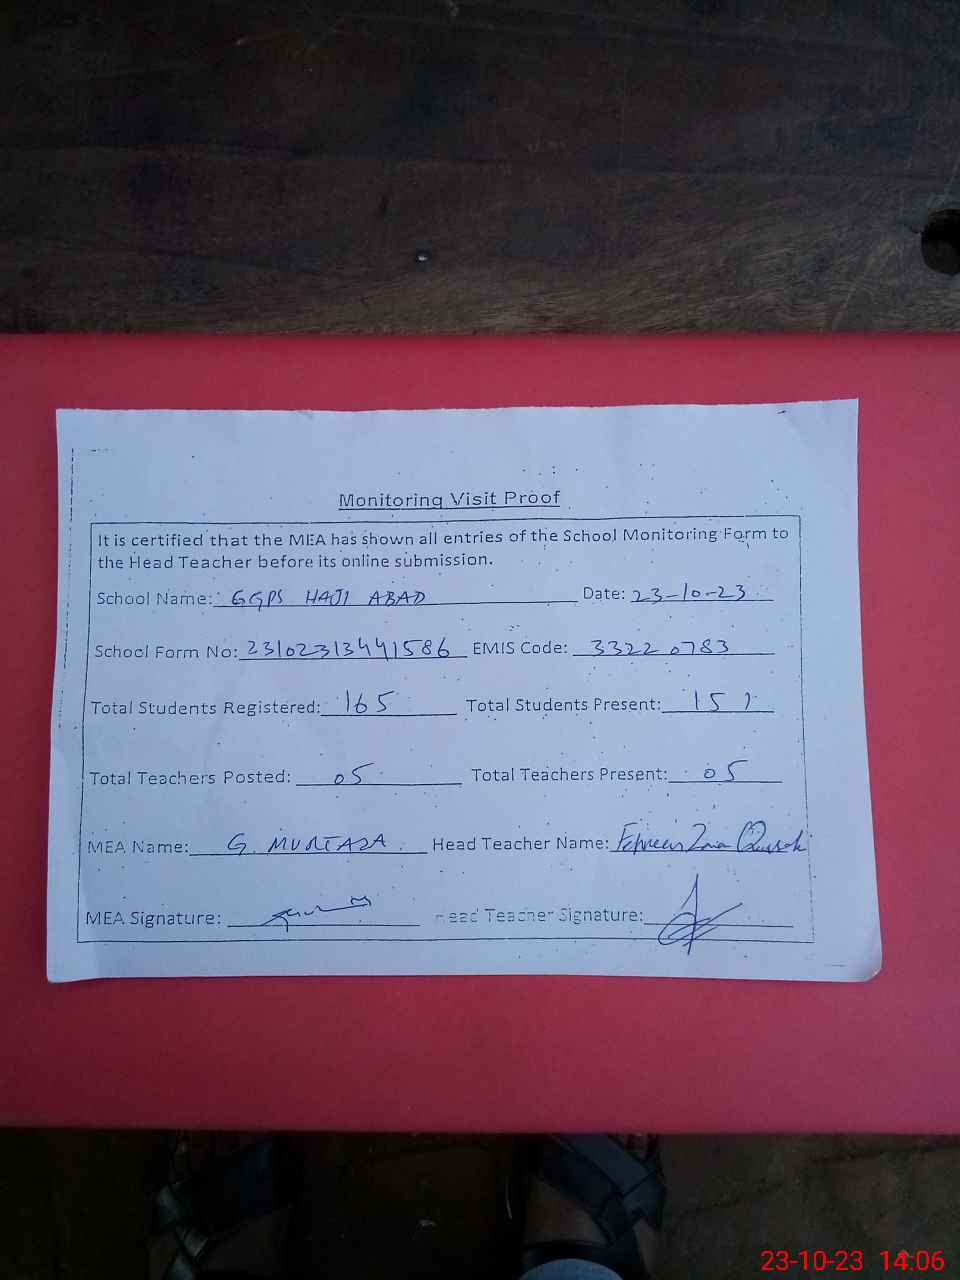 Monitoring Visit Proof
It is certified that the MEA has shown all entries of the School Monitoring Form to
the Head Teacher before its online submission.
School Name: GGPS HAJI ABAD Date: 23-10-23
School Form No: 23102313441586 EMIS Code: 33220783
Total Students Registered: 165 Total Students Present: 151
Total Teachers Posted: 05 Total Teachers Present: 05
MEA Name: G. MURTAZA Head Teacher Name:
MEA Signature: Head Teacher Signature:
23-10-23 14:06